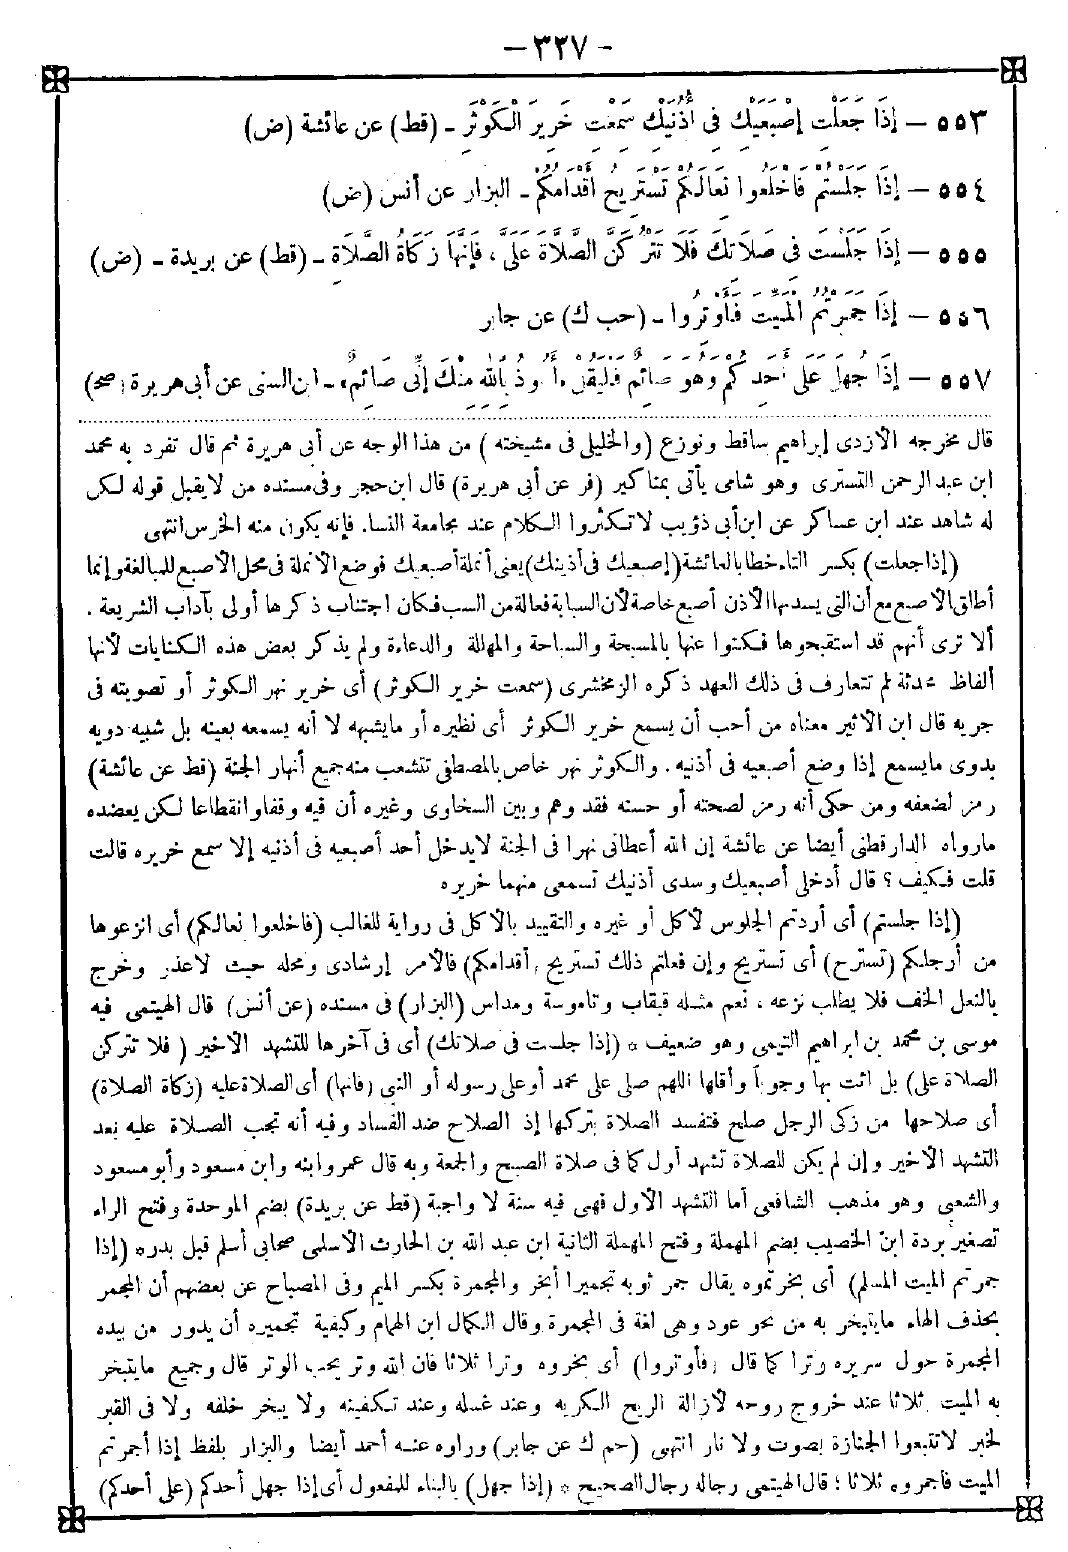 - ٣٢٧ -
٥٥٣ - إِذَا جَعَلْتِ إِصْبَعَيْكِ فِي أُذُنَيْكِ سَمِعْتِ خَرِيرَ الْكَوْثَرِ - (قط) عن عائشة (ض)
٥٥٤ - إِذَا جَلَسْتُمْ فَاخْلَعُوا نِعَالَكُمْ تَسْتَرِيحُ أَقْدَامُكُمْ - البزار عن أنس (ض)
٥٥٥ - إِذَا جَلَسْتَ فِي صَلَاتِكَ فَلَا تَتْرُكَنَّ الصَّلَاةَ عَلَيَّ، فَإِنَّهَا زَكَاةُ الصَّلَاةِ - (قط) عن بريدة - (ض)
٥٥٦ - إِذَا جَمَّرْتُمُ الْمَيِّتَ فَأَوْتِرُوا - (حب ك) عن جابر
٥٥٧ - إِذَا جُهِلَ عَلَى أَحَدِكُمْ وَهُوَ صَائِمٌ فَلْيَقُلْ «أَعُوذُ بِاللَّهِ مِنْكَ إِنِّي صَائِمٌ» - ابن السنى عن أبى هريرة (صح)
قال مخرجه الأزدى إبراهيم ساقط ونوزع (والخليلى فى مشيخته) من هذا الوجه عن أبى هريرة ثم قال تفرد به محمد
ابن عبد الرحمن التسترى وهو شامى يأتى بمناكير (فر عن أبى هريرة) قال ابن حجر وفى مسنده من لا يقبل قوله لكن
له شاهد عند ابن عساكر عن ابن أبى ذؤيب لا تكثروا الكلام عند مجامعة النساء فإنه يكون منه الخرس انتهى
(إذا جعلت) بكسر التاء خطابا لعائشة (إصبعيك فى أذنيك) يعنى أنملة أصبعيك فوضع الأنملة فى محل الأصبع للمبالغة وإنما
أطلق الأصبع مع أن التى يسد بها الأذن أصبع خاصة لأن السبابة فعالة من السب فكان اجتناب ذكرها أولى بآداب الشريعة .
ألا ترى أنهم قد استقبحوها فكنوا عنها بالمسبحة والسباحة والمهللة والدعاءة ولم يذكر بعض هذه الكنايات لأنها
ألفاظ محدثة لم تتعارف فى ذلك العهد ذكره الزمخشرى (سمعت خرير الكوثر) أى خرير نهر الكوثر أو تصويته فى
جريه قال ابن الأثير معناه من أحب أن يسمع خرير الكوثر أى نظيره أو ما يشبهه لا أنه يسمعه بعينه بل شبيه دويه
بدوى ما يسمع إذا وضع أصبعيه فى أذنيه . والكوثر نهر خاص بالمصطفى تتشعب منه جميع أنهار الجنة (قط عن عائشة)
رمز لضعفه ومن حكى أنه رمز لصحته أو حسنه فقد وهم وبين السخاوى وغيره أن فيه وقفا وانقطاعا لكن يعضده
مارواه الدارقطنى أيضا عن عائشة إن الله أعطانى نهرا فى الجنة لا يدخل أحد أصبعيه فى أذنيه إلا سمع خريره قالت
قلت فكيف ؟ قال أدخلى أصبعيك وسدى أذنيك تسمعى منهما خريره
(إذا جلستم) أى أردتم الجلوس لأكل أو غيره والتقييد بالأكل فى رواية للغالب (فاخلعوا نعالكم) أى انزعوها
من أرجلكم (تسترح) أى تستريح وإن فعلتم ذلك تستريح (أقدامكم) فالأمر إرشادى ومحله حيث لا عذر وخرج
بالنعل الخف فلا يطلب نزعه ، نعم مثله قبقاب وتاموسة ومداس (البزار) فى مسنده (عن أنس) قال الهيتمى فيه
موسى بن محمد بن ابراهيم التيمى وهو ضعيف * (إذا جلست فى صلاتك) أى فى آخرها للتشهد الأخير ( فلا تتركن
الصلاة على) بل ائت بها وجوبا وأقلها اللهم صلى على محمد أو على رسوله أو النبى (فانها) أى الصلاة عليه (زكاة الصلاة)
أى صلاحها من زكى الرجل صلح فتفسد الصلاة بتركها إذ الصلاح ضد الفساد وفيه أنه تجب الصلاة عليه بعد
التشهد الأخير وإن لم يكن للصلاة تشهد أول كما فى صلاة الصبح والجمعة وبه قال عمر وابنه وابن مسعود وأبو مسعود
والشعبى وهو مذهب الشافعى أما التشهد الأول فهى فيه سنة لا واجبة (قط عن بريدة) بضم الموحدة وفتح الراء
تصغير بردة ابن الخصيب بضم المهملة وفتح المهملة الثانية ابن عبد الله بن الحارث الأسلمى صحابى أسلم قبل بدره (إذا
جمرتم الميت المسلم) أى بخرتموه يقال جمر ثوبه تجميرا أبخر والمجمرة بكسر الميم وفى المصباح عن بعضهم أن المجمر
بحذف الهاء ما يتبخر به من نحو عود وهى لغة فى المجمرة وقال الكمال ابن الهمام وكيفية تجميره أن يدور من بيده
المجمرة حول سريره وترا كما قال (فأوتروا) أى بخروه وترا ثلاثا فان الله وتر يحب الوتر قال وجميع ما يتبخر
به الميت ثلاثا عند خروج روحه لإزالة الريح الكريه وعند غسله وعند تكفينه ولا يبخر خلفه ولا فى القبر
لخبر لا تتبعوا الجنازة بصوت ولا نار انتهى (حم ك عن جابر) ورواه عنه أحمد أيضا والبزار بلفظ إذا أجمرتم
الميت فاجمروه ثلاثا ؛ قال الهيتمى رجاله رجال الصحيح * (إذا جهل) بالبناء للمفعول أى إذا جهل أحدكم (على أحدكم)